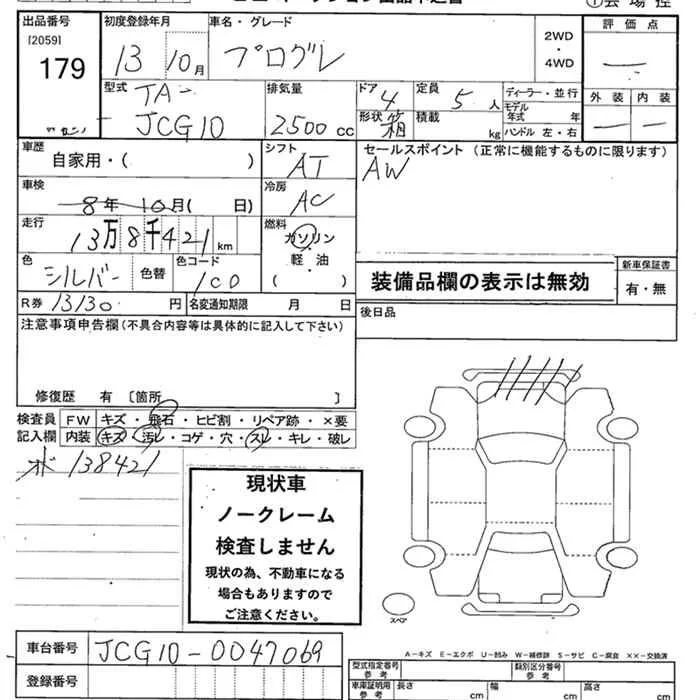 出品番号 初度登録年月 車名・グレード 2WD・4WD 評価点
[2059]
179 13 10月 プログレ
型式 排気量 ドア 定員 ディーラー・並行 外装 内装
TA- 4 5人 モデル年式 年
JCG10 2500cc 形状 箱 積載 kg ハンドル 左・右
車歴 シフト セールスポイント (正常に機能するものに限ります)
自家用・( ) AT AW
車検 冷房
8年 10月( 日) AC
走行 燃料
13万8千421km ガソリン
軽・油
色 色替 色コード ( )
シルバー 1C0 装備品欄の表示は無効 新車保証書
有・無
R券 13130円 名変通知期限 月 日 後日品
注意事項申告欄(不具合内容等は具体的に記入して下さい)
修復歴 有 〔箇所 〕
検査員 FW キズ・飛石・ヒビ割・リペア跡・×要
記入欄 内装 キズ・汚レ・コゲ・穴・スレ・キレ・破レ
138421
現状車
ノークレーム
検査しません
現状の為、不動車になる
場合もありますので
ご注意ください。
スペア
A-キズ E-エクボ U-凹み W-補修跡 S-サビ C-腐食 ××-交換済
車台番号 JCG10-0047069
型式指定番号 参考 類別区分番号 参考
登録番号
車庫証明用 参考 長さ cm 幅 cm 高さ cm